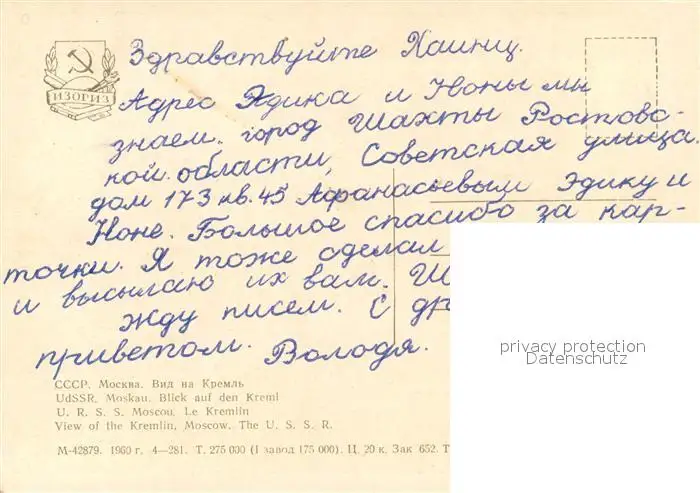 Здравствуйте Хаинц.
ИЗОГИЗ
Адрес Эдика и Ноны мы
знаем. город Шахты Ростовс-
кой области, Советская улица.
дом 173 кв. 45 Афанасьевым Эдику и
Ноне. Большое спасибо за кар-
точки. Я тоже сделал
и высылаю их вам.
Жду писем. С др
приветом. Володя.
privacy protection
Datenschutz
СССР. Москва. Вид на Кремль
UdSSR. Moskau. Blick auf den Kreml
U. R. S. S. Moscou. Le Kremlin
View of the Kremlin, Moscow. The U. S. S. R.
М-42879. 1960 г. 4—281. Т. 275 000 (1 завод 175 000). Ц. 20 к. Зак 652. Т